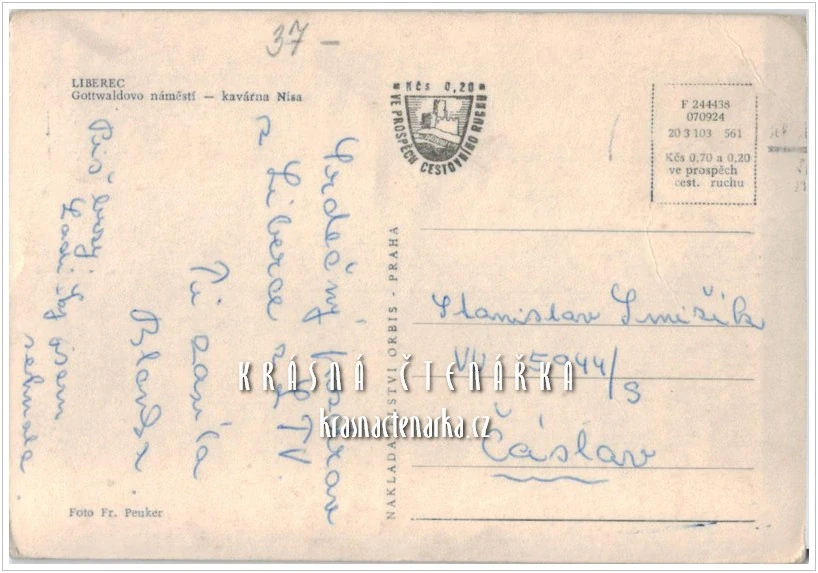 37 –
LIBEREC
Gottwaldovo náměstí — kavárna Nisa
Kčs 0,20
VE PROSPĚCH CESTOVNÍHO RUCHU
F 244438
070924
20 3 103 561
Kčs 0,70 a 0,20
ve prospěch
cest. ruchu
Srdečný pozdrav
z Liberce z LTV
Ti zasílá
Blanka
Piš brzy
sehnala
NAKLADATELSTVÍ ORBIS - PRAHA
Stanislav Smižík
VÚ 5944/S
Čáslav
KRÁSNÁ ČTENÁŘKA
krasnactenarka.cz
Foto Fr. Peuker